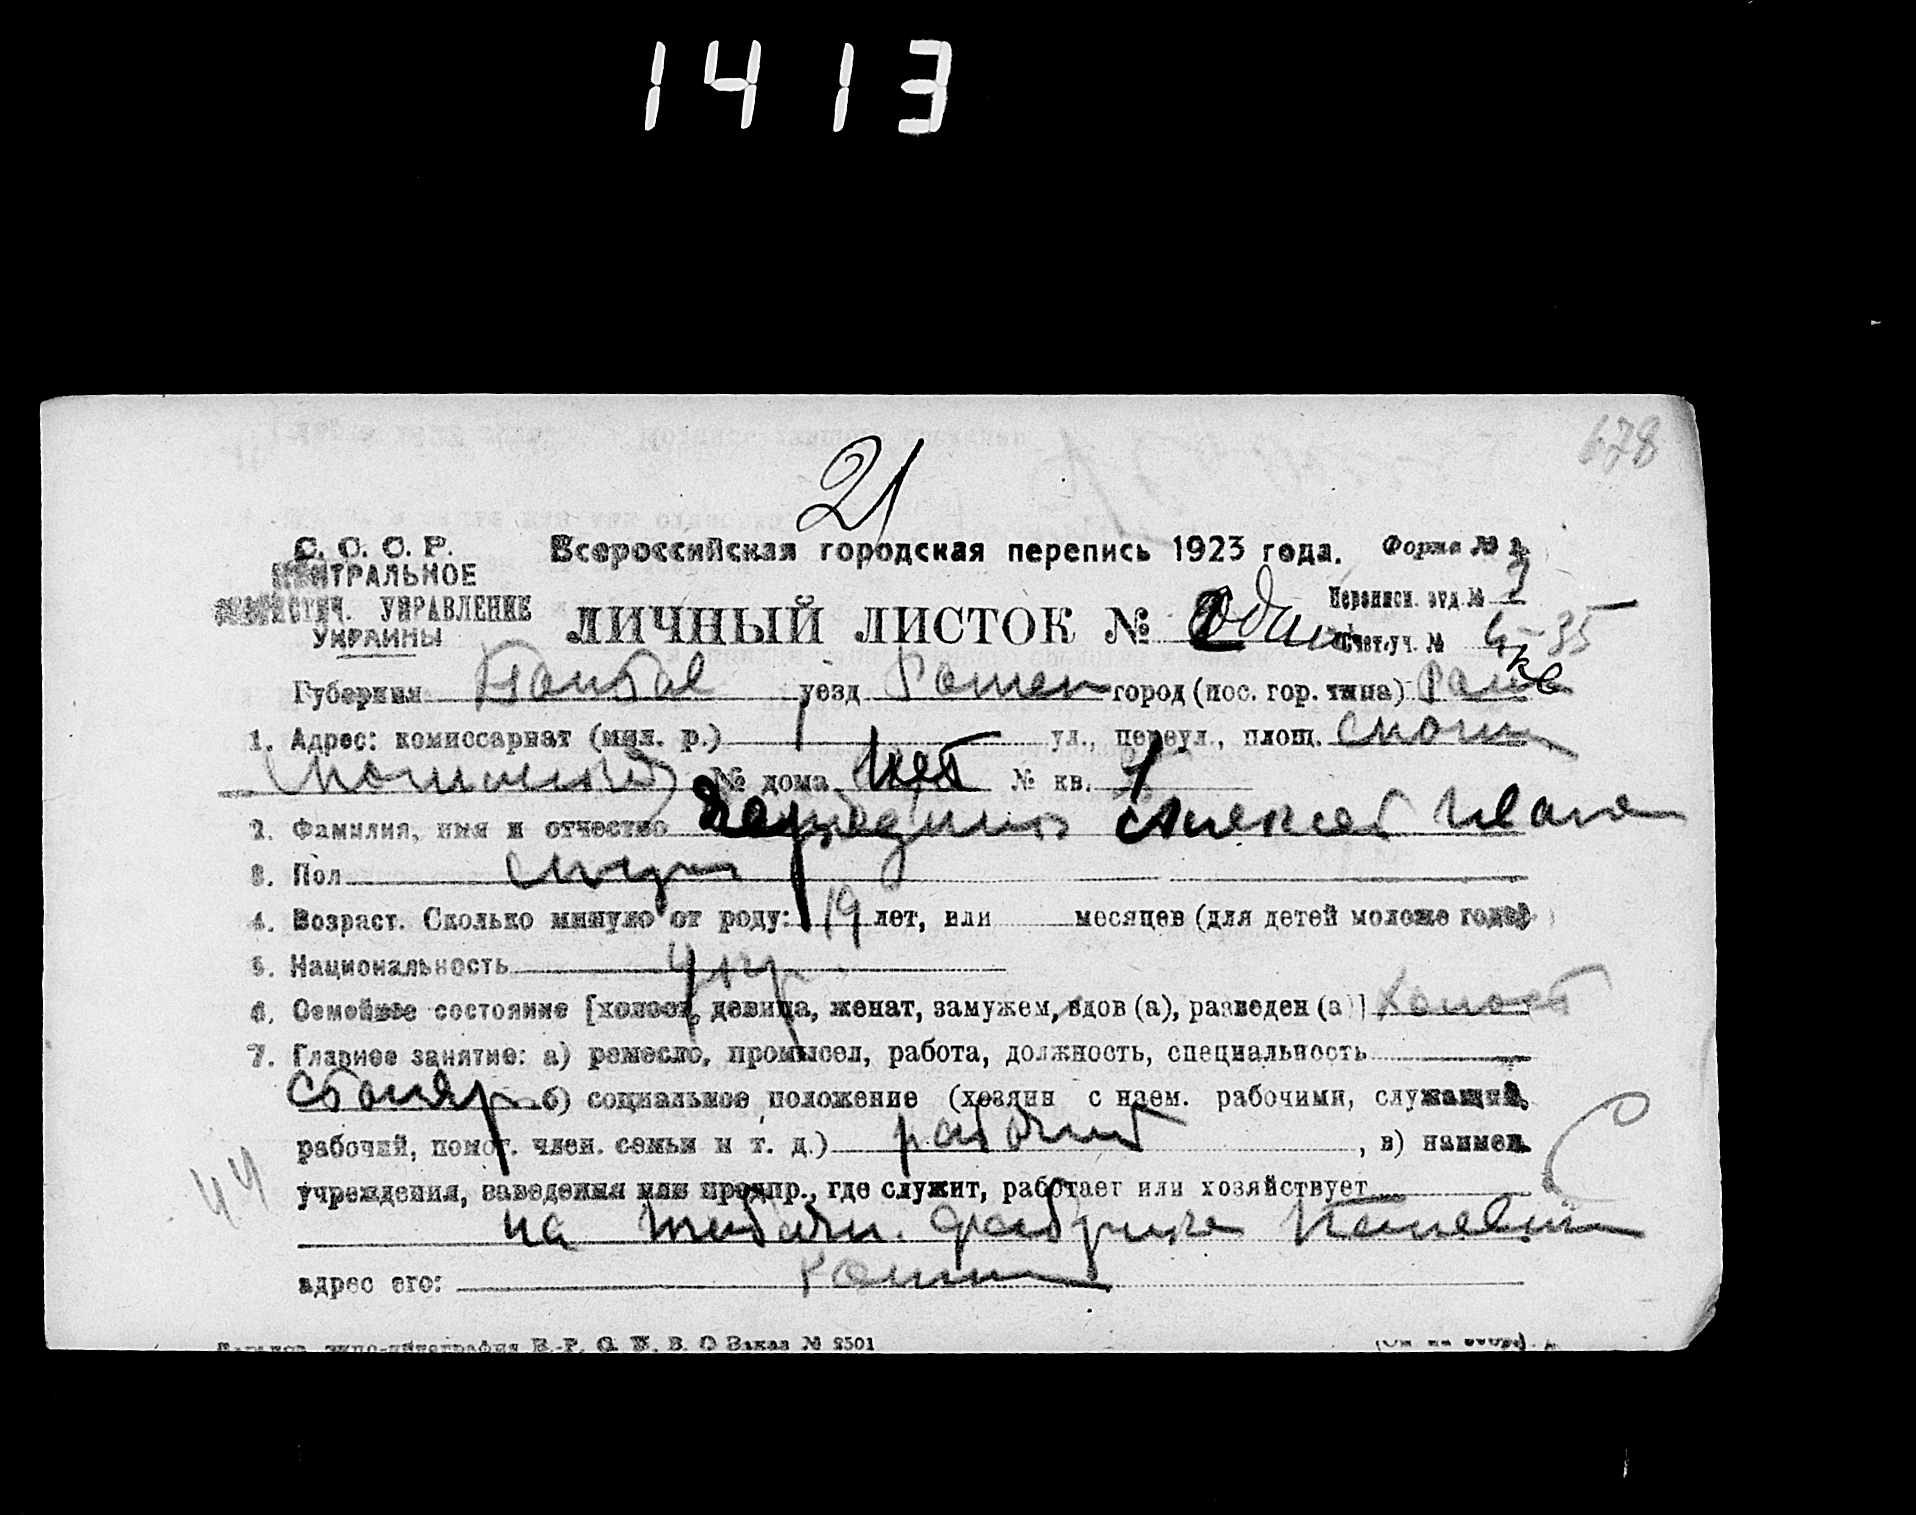 1413
678
21
С. С. С. Р.
ЦЕНТРАЛЬНОЕ
СТАТИСТИЧ. УПРАВЛЕНИЕ
УКРАИНЫ
Всероссийская городская перепись 1923 года.
Форма № 1
ЛИЧНЫЙ ЛИСТОК №
Переписн. отд. № 3
Счет. уч. № 35
Губерния Полтав уезд Ромен город (пос. гор. типа)
1. Адрес: комиссариат (мил. р.) 1 ул., переул., площ.
№ дома нет № кв.
2. Фамилия, имя и отчество Алексей Иван
3. Пол мужч
4. Возраст. Сколько минуло от роду: 19 лет, или месяцев (для детей моложе года)
5. Национальность укр
6. Семейное состояние [холост, девица, женат, замужем, вдов (а), разведен (а)] холост
7. Главное занятие: а) ремесло, промысел, работа, должность, специальность
столяр б) социальное положение (хозяин с наем. рабочими, служащий,
рабочий, помог. член. семьи и т. д.) рабочий , в) наимен.
учреждения, заведения или предпр., где служит, работает или хозяйствует
на табачн. фабрике
адрес его: Ромны
44
Заказ № 2501